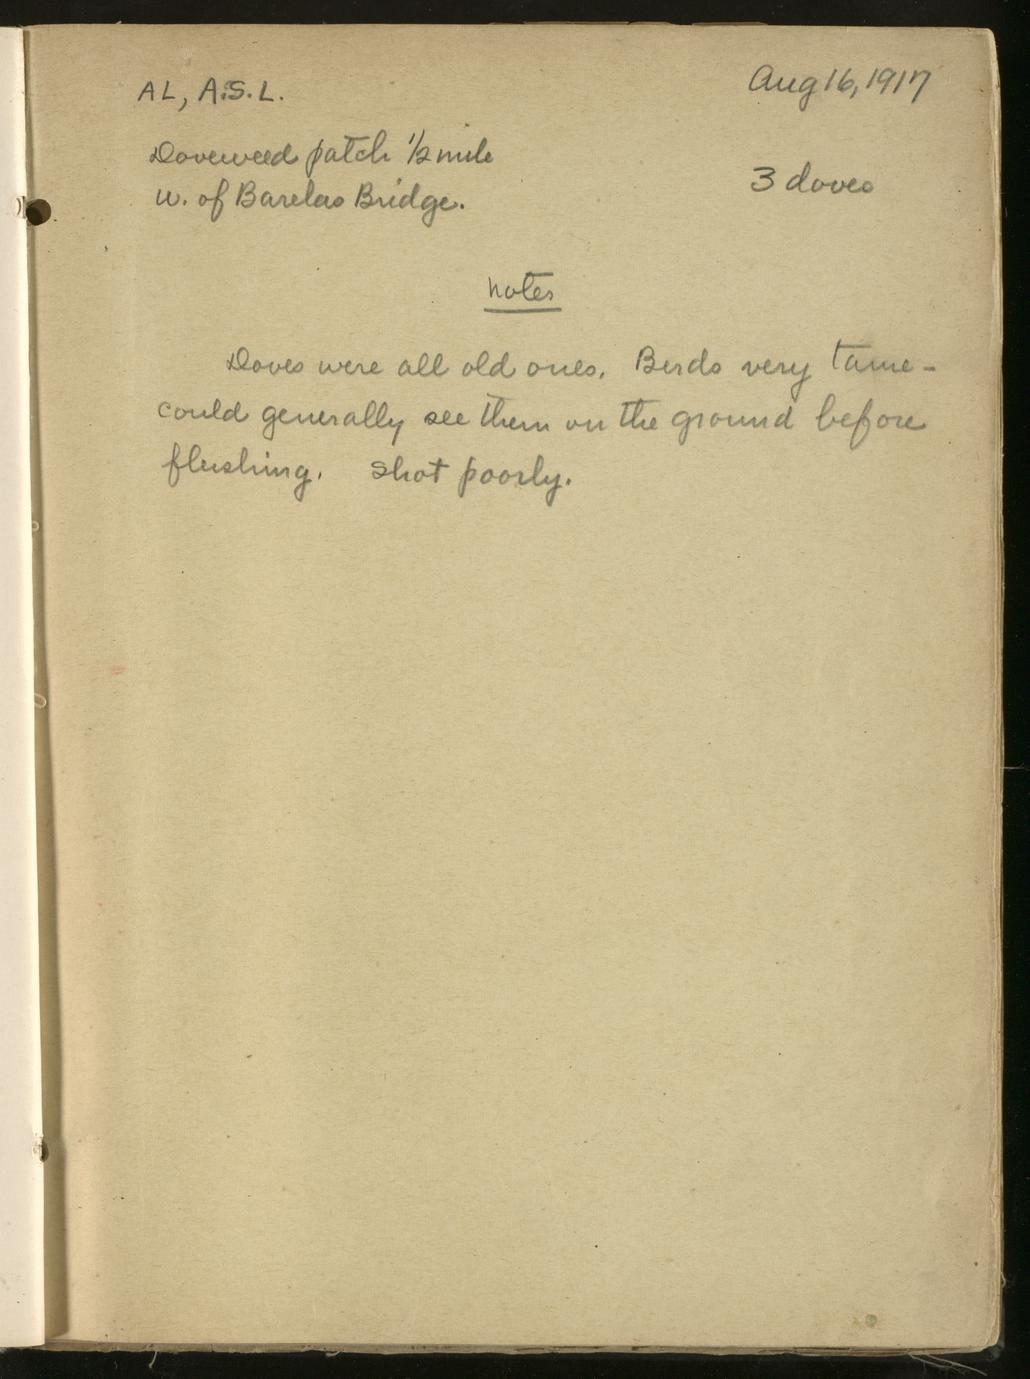 AL, A.S.L.
Aug 16, 1917
Doveweed patch 1/2 mile
w. of Barelas Bridge.
3 doves
Notes
Doves were all old ones. Birds very tame -
could generally see them on the ground before
flushing. Shot poorly.